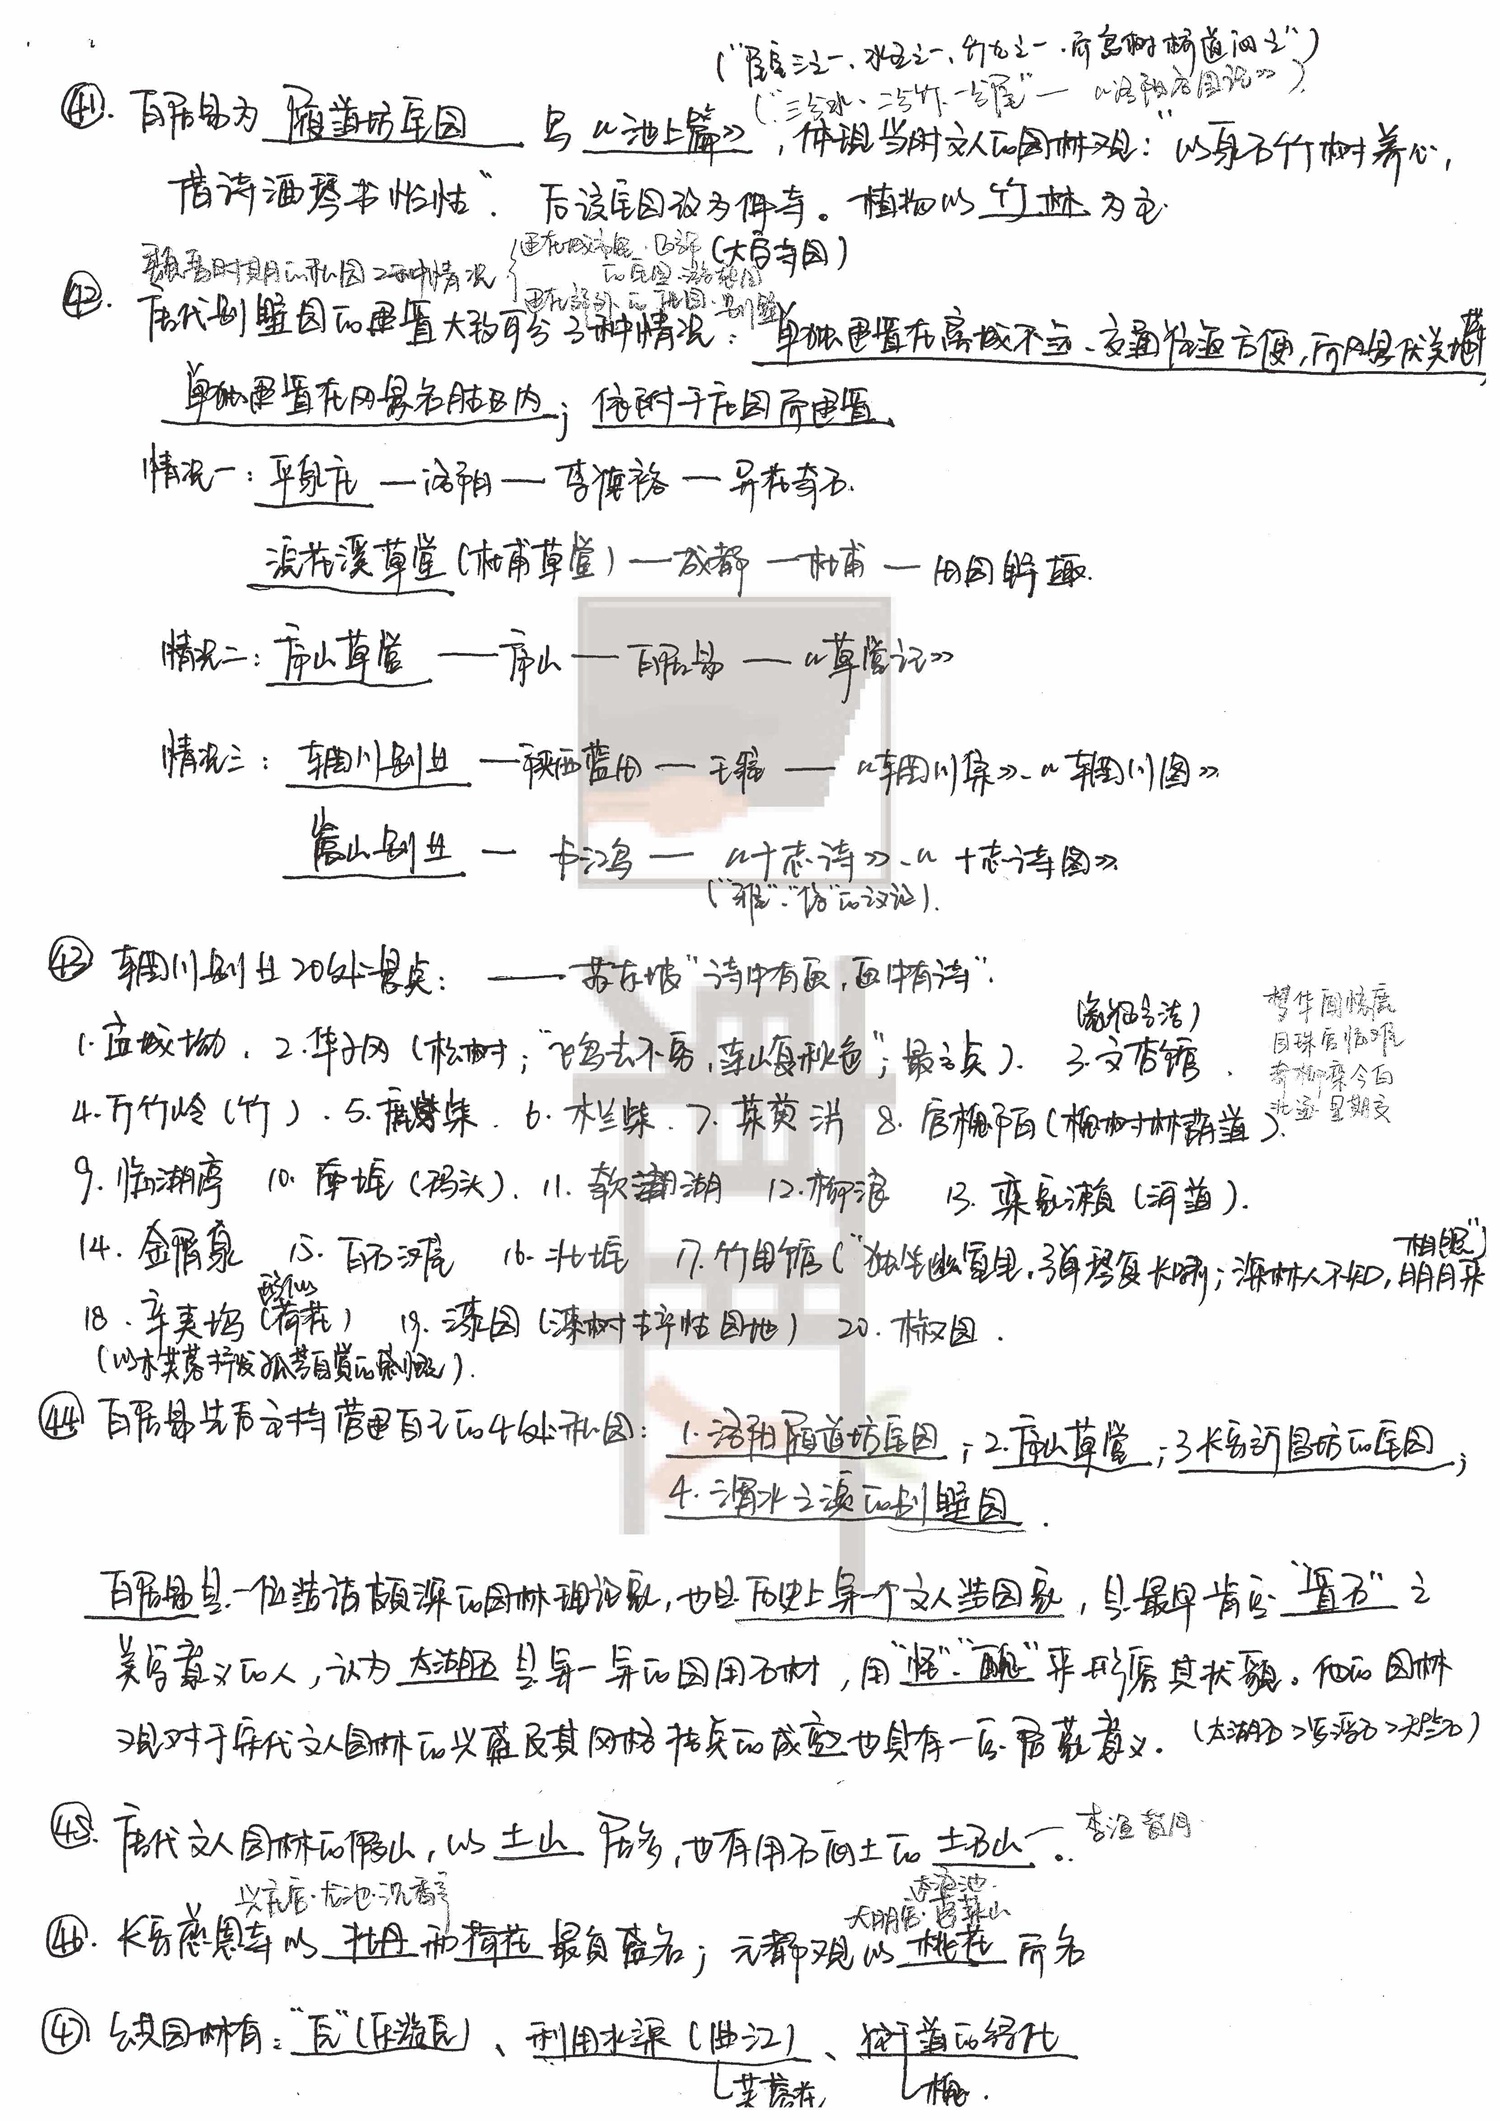 ("屋室三之一、水五之一、竹九之一、而岛树桥道间之")
("三分水、二分竹、一分屋"—
㊶. 白居易为 履道坊宅园 写《池上篇》，体现当时文人的园林观："以泉石竹树养心，
借诗酒琴书怡性"。后该宅园改为佛寺。植物以 竹林 为主.
建在城市里、近郊 (大多寺园)
的宅园、游憩园
建在郊外的庄园、别墅
㊷. 唐代别墅园的建置大致可分3种情况：单独建置在离城不远、交通往返方便，而风景优美地带；
单独建置在风景名胜区内；依附于庄园而建置.
情况一：平泉庄 — 洛阳 — 李德裕 — 异花奇石.
浣花溪草堂（杜甫草堂）— 成都 — 杜甫 — 田园野趣.
情况二：庐山草堂 — 庐山 — 白居易 —《草堂记》
情况三：辋川别业 — 陕西蓝田 — 王维 —《辋川集》、《辋川图》
嵩山别业 — 卢鸿 —《十志诗》、《十志诗图》
("雅"、"俗"的议论).
㊸ 辋川别业20处景点：—— 苏东坡"诗中有画，画中有诗".
1. 孟城坳. 2. 华子冈（松树；"飞鸟去不穷，连山复秋色"；最高点）. 3. 文杏馆.
4. 斤竹岭（竹）. 5. 鹿柴. 6. 木兰柴. 7. 茱萸沜 8. 宫槐陌（槐树林荫道）.
9. 临湖亭 10. 南垞（码头）. 11. 欹湖 12. 柳浪 13. 栾家濑（河道）.
14. 金屑泉 15. 白石滩 16. 北垞 17. 竹里馆（"独坐幽篁里，弹琴复长啸；深林人不知，明月来
相照"）
18. 辛夷坞（荷花） 19. 漆园（漆树 园地） 20. 椒园.
㊹ 白居易先后主持营建自己的4处私园：1. 洛阳履道坊宅园；2. 庐山草堂；3. 长安新昌坊的宅园；
4. 渭水之滨的别墅园.
白居易是一位造诣颇深的园林理论家，也是历史上第一个文人造园家，是最早肯定"置石"之
美学意义的人，认为 太湖石 是第一等的园用石材，用"怪"、"丑"来形容其状貌。他的园林
观对于宋代文人园林的兴盛及其风格特点的成型也具有一定启蒙意义. (太湖石>罗浮石>天竺石)
㊺. 唐代文人园林的假山，以 土山 居多，也有用石间土的 土石山.
兴庆宫·龙池·沉香亭
太液池·
大明宫·蓬莱山
㊻. 长安慈恩寺以 牡丹 和 荷花 最负盛名；元都观以 桃花 所名
㊼. 公共园林有："原"（乐游原）、利用水渠（曲江）、街道的绿化
芙蓉花
槐.